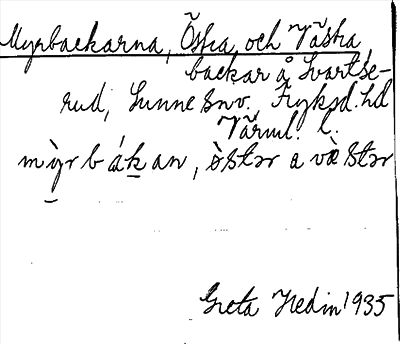 Myrbackarna, Östra och Västra,
backar å Svartse-
rud, Sunne snv. Fryksd. hd
Värml. l.
mỳrbákan, òstər a væ̀stər
Greta Hedin 1935